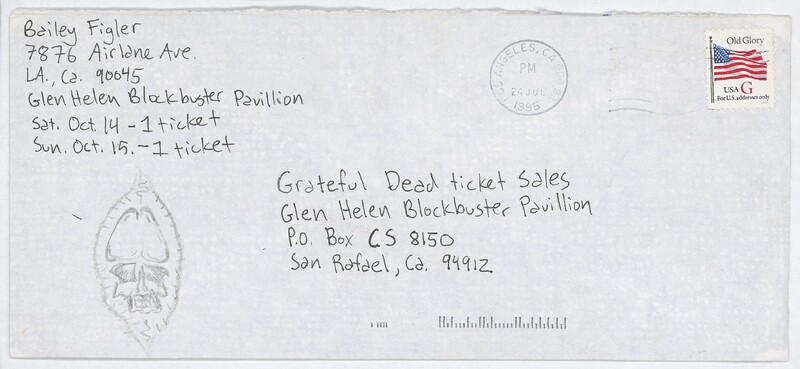 Bailey Figler
7876 Airlane Ave.
LA., Ca. 90045
Glen Helen Blockbuster Pavillion
Sat. Oct. 14 - 1 ticket
Sun. Oct. 15. - 1 ticket
LOS ANGELES, CA
PM
24 JUL
1995
Old Glory
USA G
For U.S. addresses only
Grateful Dead ticket Sales
Glen Helen Blockbuster Pavillion
P.O. Box CS 8150
San Rafael, Ca. 94912